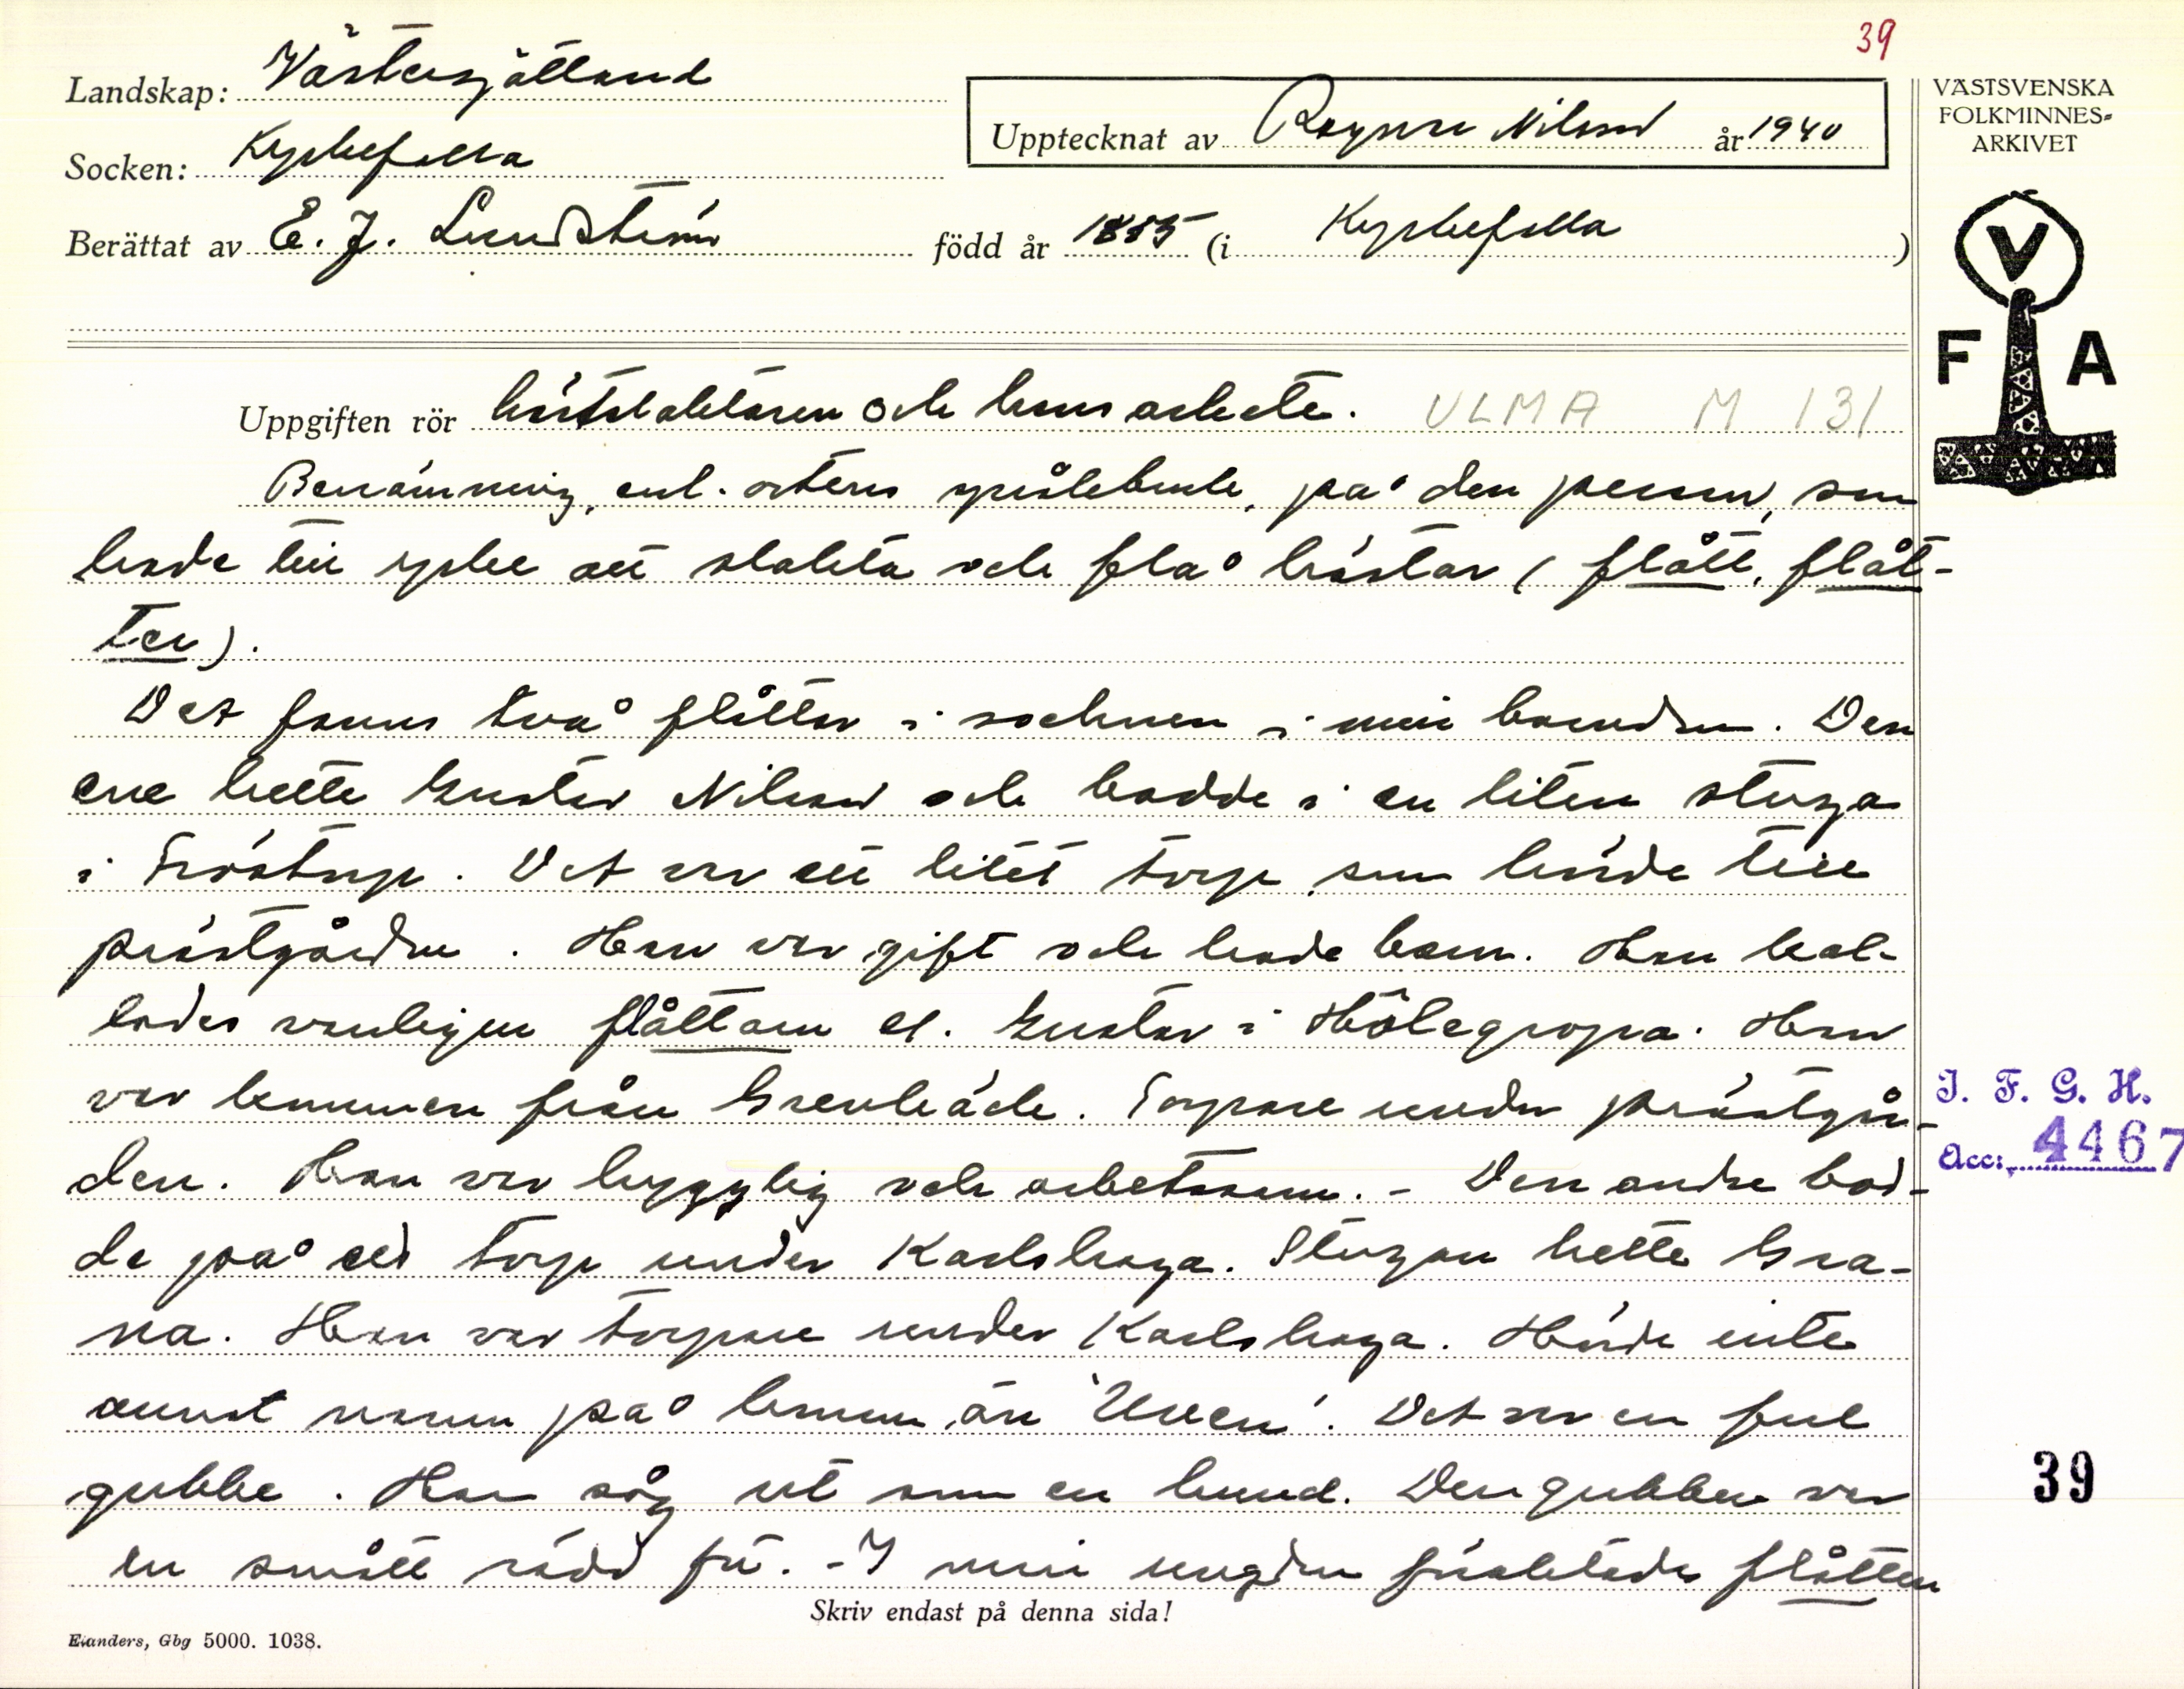 39
Landskap: Västergötland
Socken: Kyrkefalla
Upptecknat av Ragnar Nilsson år 1940
Berättat av E. J. Lundström född år 1855 (i Kyrkefalla)
VÄSTSVENSKA
FOLKMINNES=
ARKIVET
V
F A
Uppgiften rör hästslaktaren och hans arbete. ULMA M 131
Benämning, enl. ortens språkbruk, på den person, som
hade till yrke att slakta och flå hästar (flått, flåt-
ter).
Det fanns två flåttar i socknen i min barndom. Den
ene hette Gustav Nilsson och bodde i en liten stuga
i Fröstorp. Det var ett litet torp, som hörde till
prästgården. Han var gift och hade barn. Han kal-
lades vanligen flåttarn el. Gustav i Hålegropa. Han
var kommen från Grevbäck. Torpare under prästgår-
den. Han var hygglig och arbetsam. - Den andre bod-
de på ett torp under Karlshaga. Stugan hette Gra-
na. Han var torpare under Karlshaga. Hörde inte
annat namn på honom än 'Ulven'. Det var en ful
gubbe. Han såg ut som en hund. Den gubben var
en smått rädd för. - I min ungdom föraktades flåtten
Skriv endast på denna sida!
Elanders, Gbg 5000. 1038.
I. F. G. H.
Acc: 4467
39